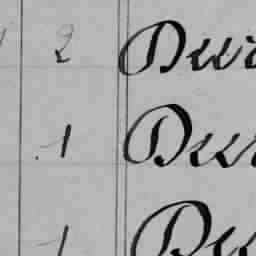 2 Dur
1 Dur
1 Du